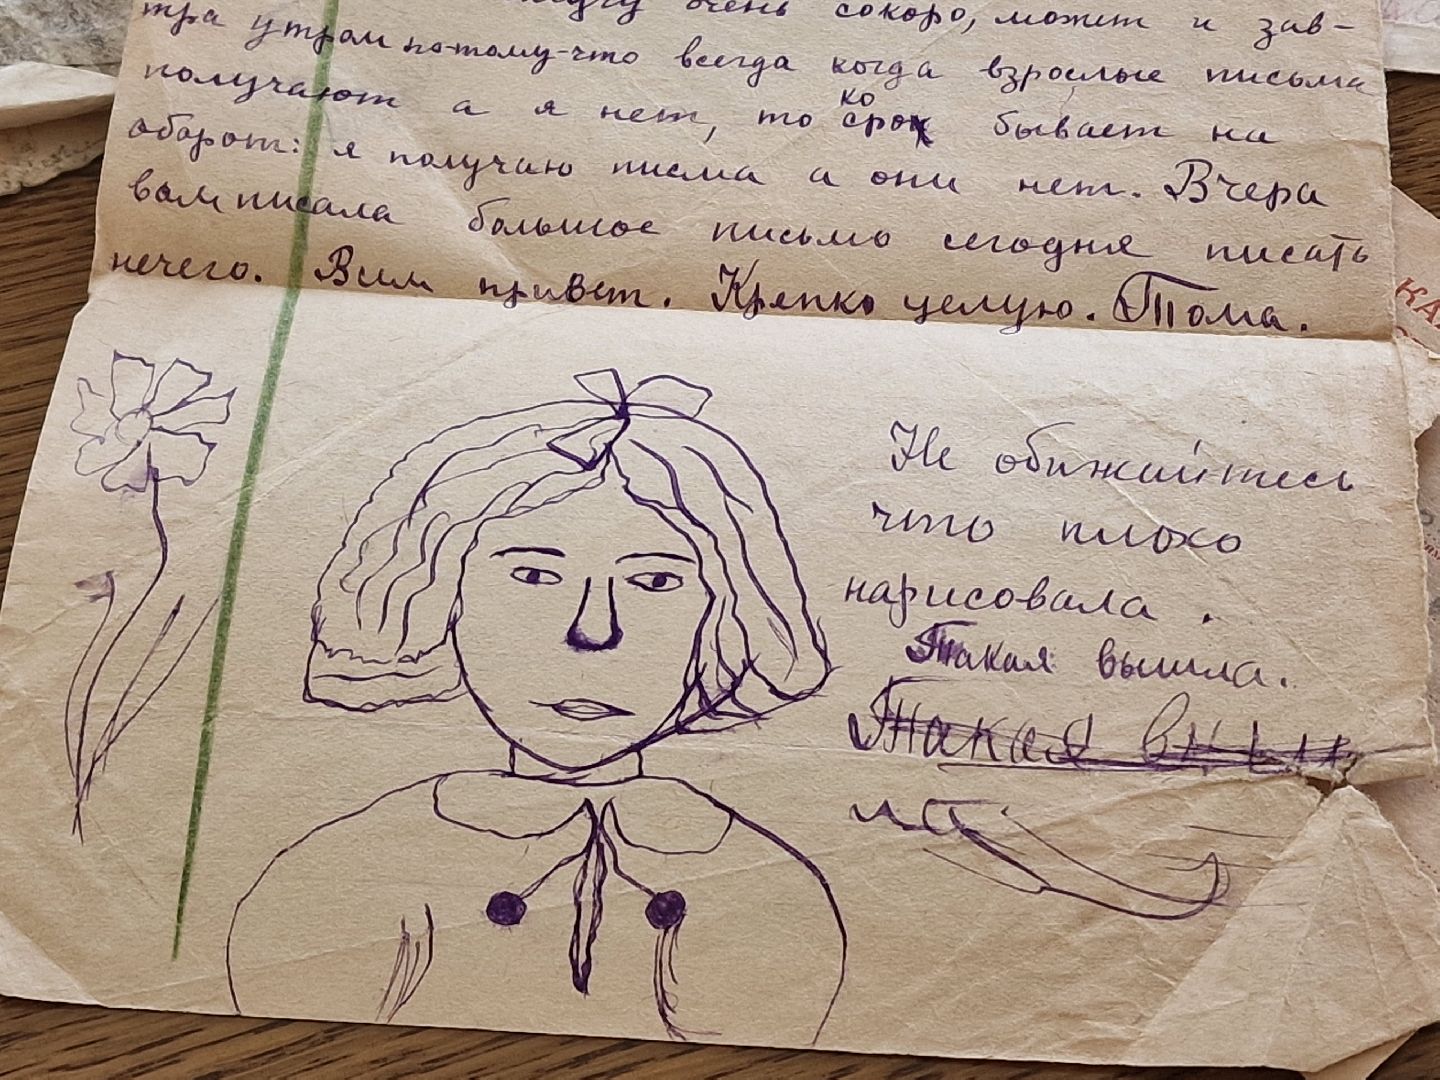 очень сокоро, может и зав-
тра утром потому-что всегда когда взрослые письма
получают а я нет, то скоро бывает на
оборот: я получаю писма а они нет. Вчера
вам писала большое письмо сегодня писать
нечего. Всим привет. Кряпко целую. Тома.
Не обижайтесь
что плохо
нарисовала.
Такая вышла.
Такая
КА